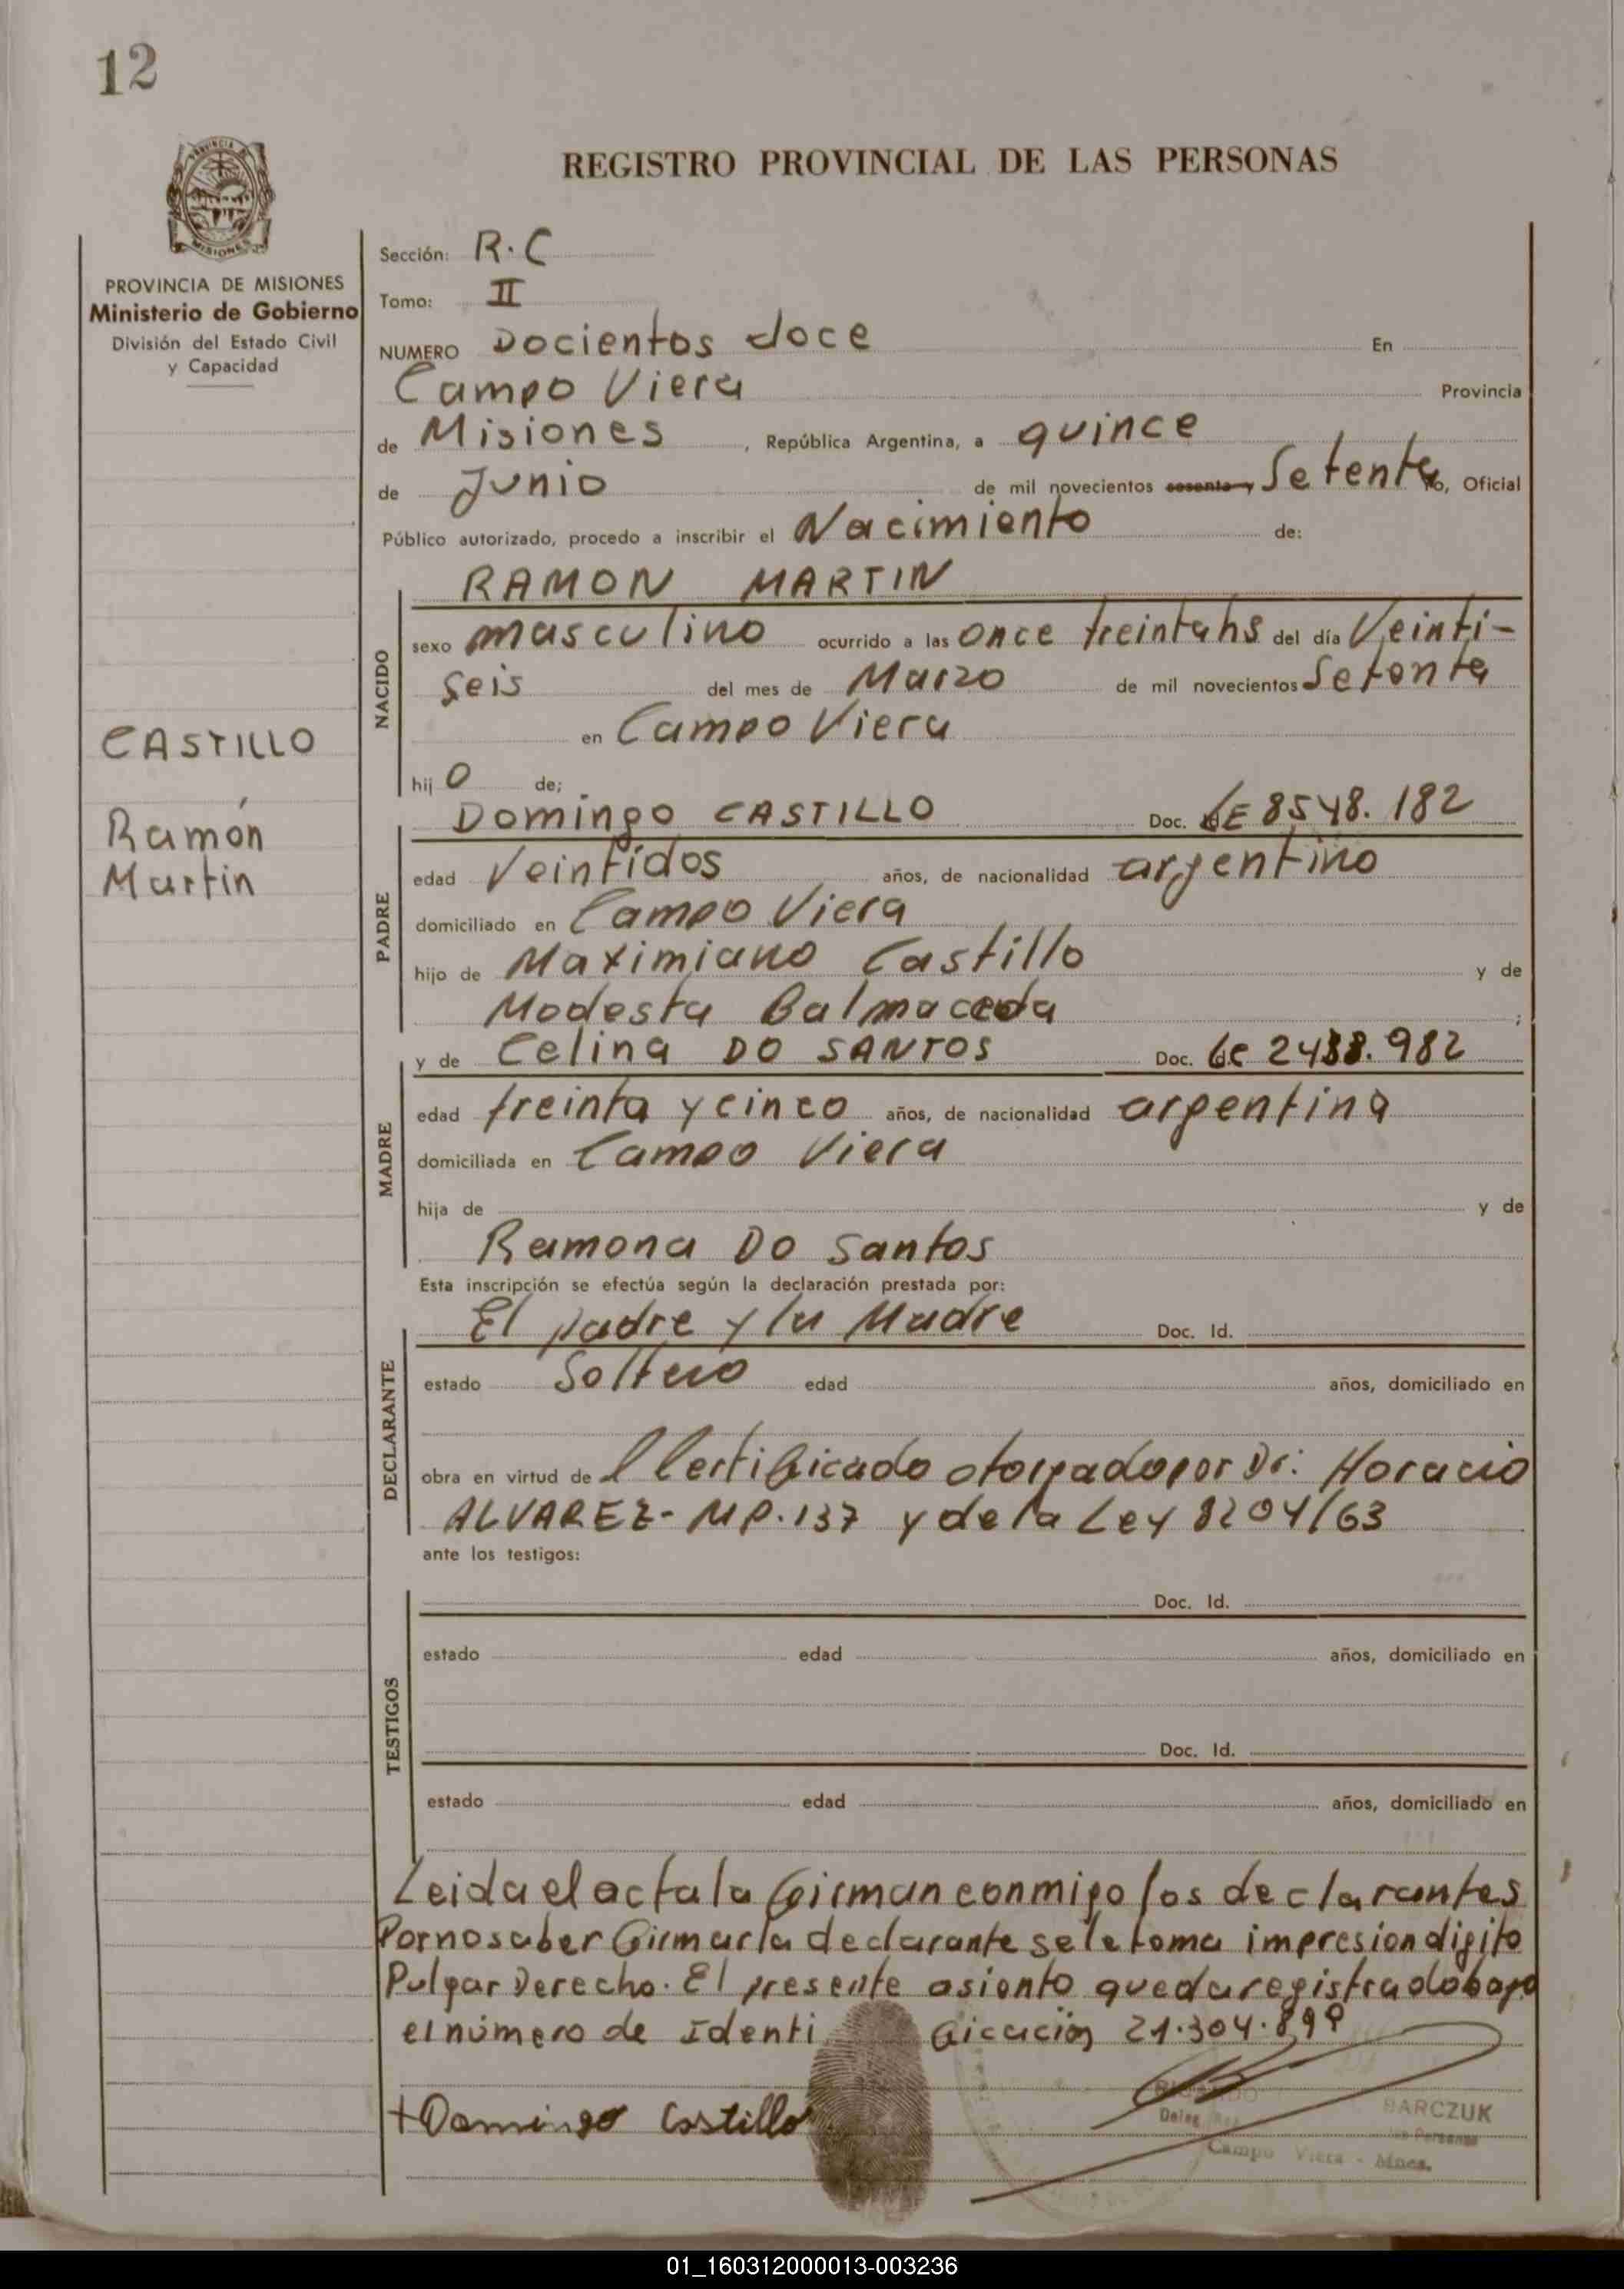 12
REGISTRO PROVINCIAL DE LAS PERSONAS
PROVINCIA DE MISIONES
Ministerio de Gobierno
División del Estado Civil
y Capacidad
CASTILLO
Ramón
Martin
Sección: R.C
Tomo: II
NUMERO Docientos doce En
Campo Viera Provincia
de Misiones, República Argentina, a quince
de Junio de mil novecientos sesenta y Setenta, Oficial
Público autorizado, procedo a inscribir el Nacimiento de:
NACIDO
RAMON MARTIN
sexo masculino ocurrido a las once treinta hs del día Veinti-
seis del mes de Marzo de mil novecientos Setenta
en Campo Viera
hijo de;
PADRE
Domingo CASTILLO Doc. LE 8548.182
edad Veintidos años, de nacionalidad argentino
domiciliado en Campo Viera
hijo de Maximiano Castillo y de
Modesta Balmaceda ;
MADRE
y de Celina DO SANTOS Doc. 2438.982
edad treinta y cinco años, de nacionalidad argentina
domiciliada en Campo Viera
hija de y de
Ramona Do Santos
Esta inscripción se efectúa según la declaración prestada por:
DECLARANTE
El padre y la Madre Doc. Id.
estado Soltero edad años, domiciliado en
obra en virtud de l Certificado otorgado por Dr. Horacio
ALVAREZ - MP. 137 y de la Ley 8204/63
ante los testigos:
TESTIGOS
Doc. Id.
estado edad años, domiciliado en
Doc. Id.
estado edad años, domiciliado en
Leida el acta la firman conmigo los declarantes
Por no saber firmar la declarante se le toma impresion digito
Pulgar Derecho. El presente asiento queda registrado bajo
el número de Identi ficación 21.304.899
+Domingo Castillo
BARCZUK
Campo Viera - Mnes.
01_160312000013-003236